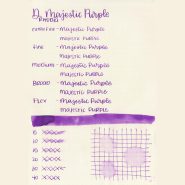 D. Majestic Purple
Extra Fine - Majestic Purple
Majestic Purple
Fine - Majestic Purple
Majestic Purple
Medium - Majestic Purple
Majestic Purple
Broad - Majestic Purple
Majestic Purple
Flex - Majestic Purple
Majestic Purple
10 xxxxxx
20 xxxxx
30 xxxxx
40 xxxx